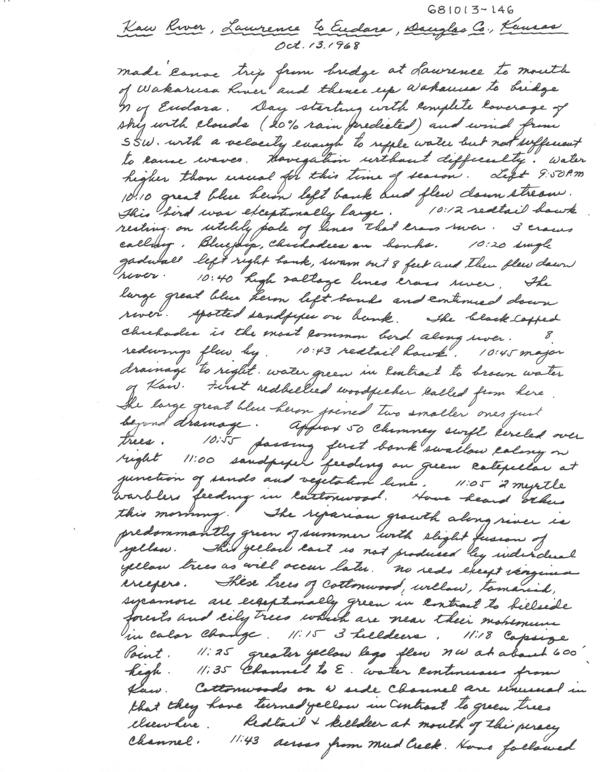 G81013-146
Kaw River, Lawrence to Eudora, Douglas Co., Kansas
Oct. 13, 1968
Made canoe trip from bridge at Lawrence to mouth
of Wakarusa River and thence up Wakarusa to bridge
N of Eudora. Day starting with complete coverage of
sky with clouds (20% rain predicted) and wind from
SSW. with a velocity enough to ripple water but not sufficient
to cause waves. Navigation without difficulty. Water
higher than usual for this time of season. Left 9:50 AM
10:10 great blue heron left bank and flew down stream.
This bird was exceptionally large. 10:12 redtail hawk
resting on utility pole of lines that cross river. 3 crows
calling. Bluejays, chickadees on banks. 10:20 single
gadwall left right bank, swam out 8 feet and then flew down
river. 10:40 high voltage lines cross river. The
large great blue heron left bank and continued down
river. Spotted sandpiper on bank. The black-capped
chickadee is the most common bird along river. 8
redwings flew by. 10:43 redtail hawk. 10:45 major
drainage to right. water green in contrast to brown water
of Kaw. First redbellied woodpecker called from here.
The large great blue heron joined two smaller ones just
beyond drainage. Approx 50 chimney swift circled over
trees. 10:55 passing first bank swallow colony on
right 11:00 sandpiper feeding on green caterpillar at
junction of sands and vegetation line. 11:05 2 myrtle
warblers feeding in cottonwood. Have heard others
this morning. The riparian growth along river is
predominantly green of summer with slight fusion of
yellow. This yellow cast is not produced by individual
yellow trees as will occur later. No reds except virginia
creepers. These trees of cottonwood, willow, tamarid,
sycamore are exceptionally green in contrast to hillside
forests and city trees which are near their maximum
in color change. 11:15 3 killdeers. 11:18 Capsize
Point. 11:25 greater yellow legs flew NW at about 600'
high. 11:35 Channel to E. water continuous from
Kaw. Cottonwoods on W side channel are unusual in
that they have turned yellow in contrast to green trees
elsewhere. Redtail + killdeer at mouth of this piracy
channel. 11:43 across from Mud Creek. Have followed